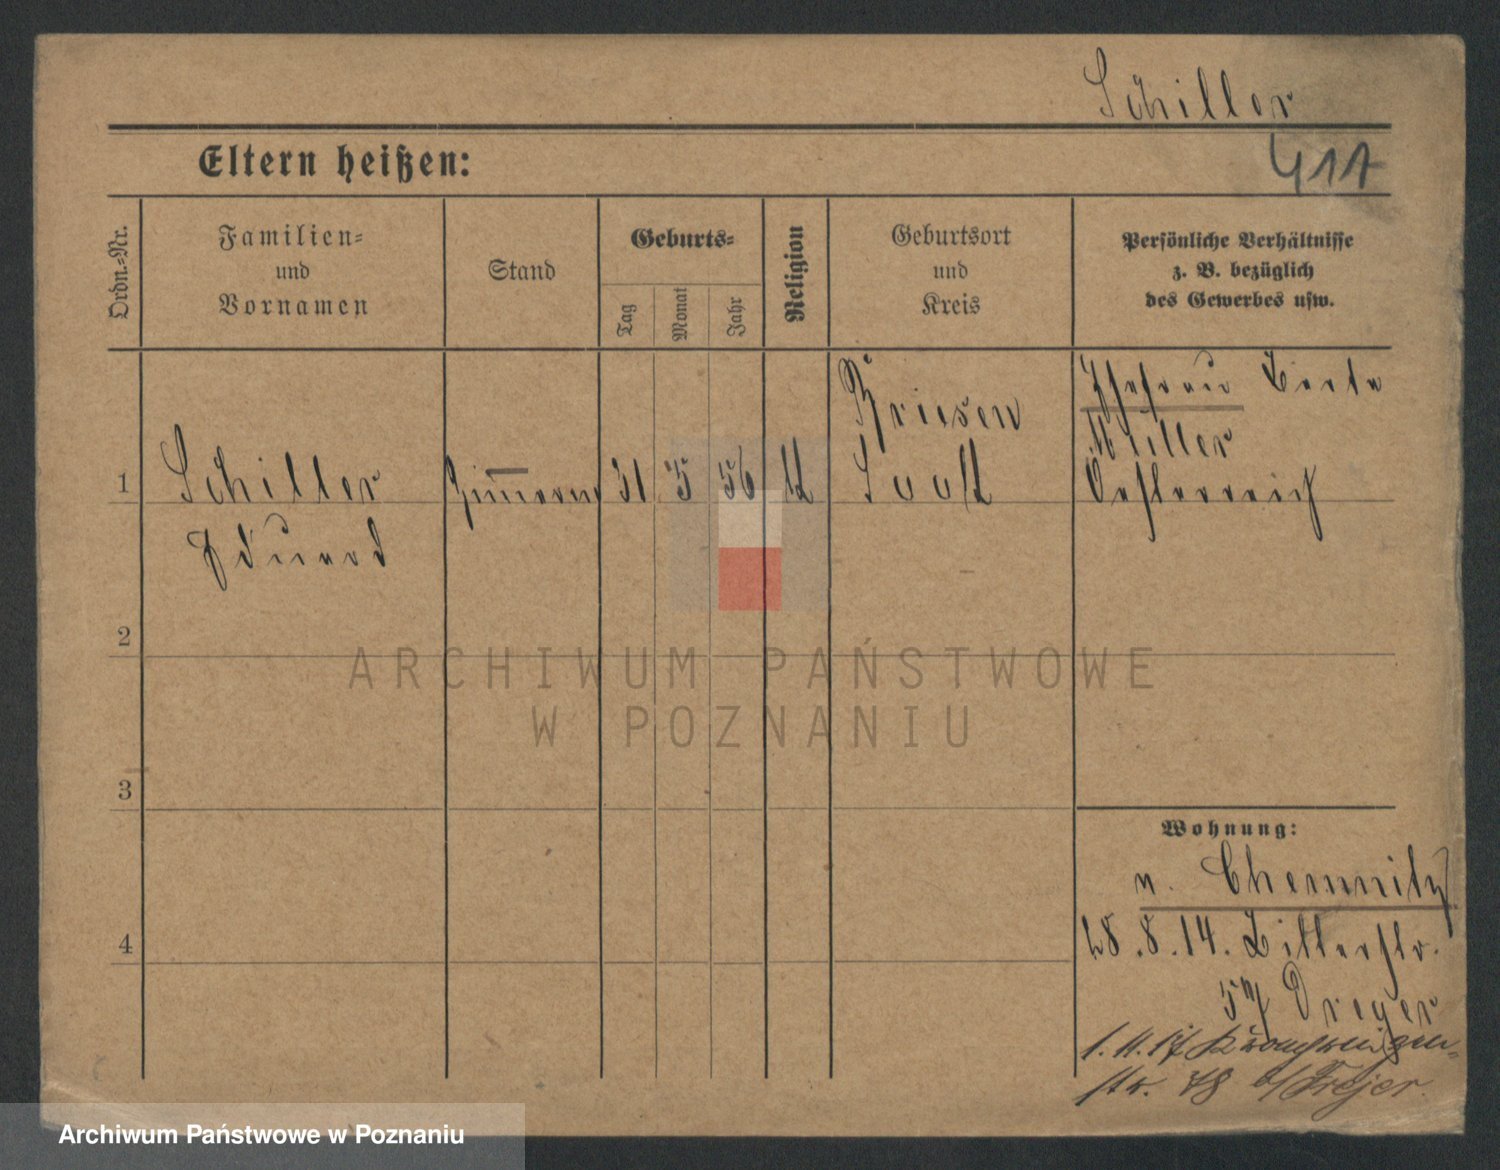 Schiller
411
Eltern heißen:
Ordn.-Nr.
Familien-
und
Vornamen
Stand
Geburts-
Tag
Monat
Jahr
Religion
Geburtsort
und
Kreis
Persönliche Verhältnisse
z. B. bezüglich
des Gewerbes usw.
1
Schiller
Eduard
31
5
56
Briesen
Ehefrau
Müller
Oesterreich
2
3
4
Wohnung:
n. Chemnitz
28.8.14.
57 Dreyer
1.11.17 Kronprinzen-
str. 78 b/ Frejer.
ARCHIWUM PAŃSTWOWE
W POZNANIU
Archiwum Państwowe w Poznaniu